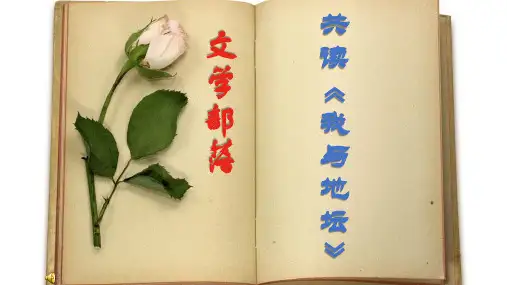 文学部落
共读《我与地坛》